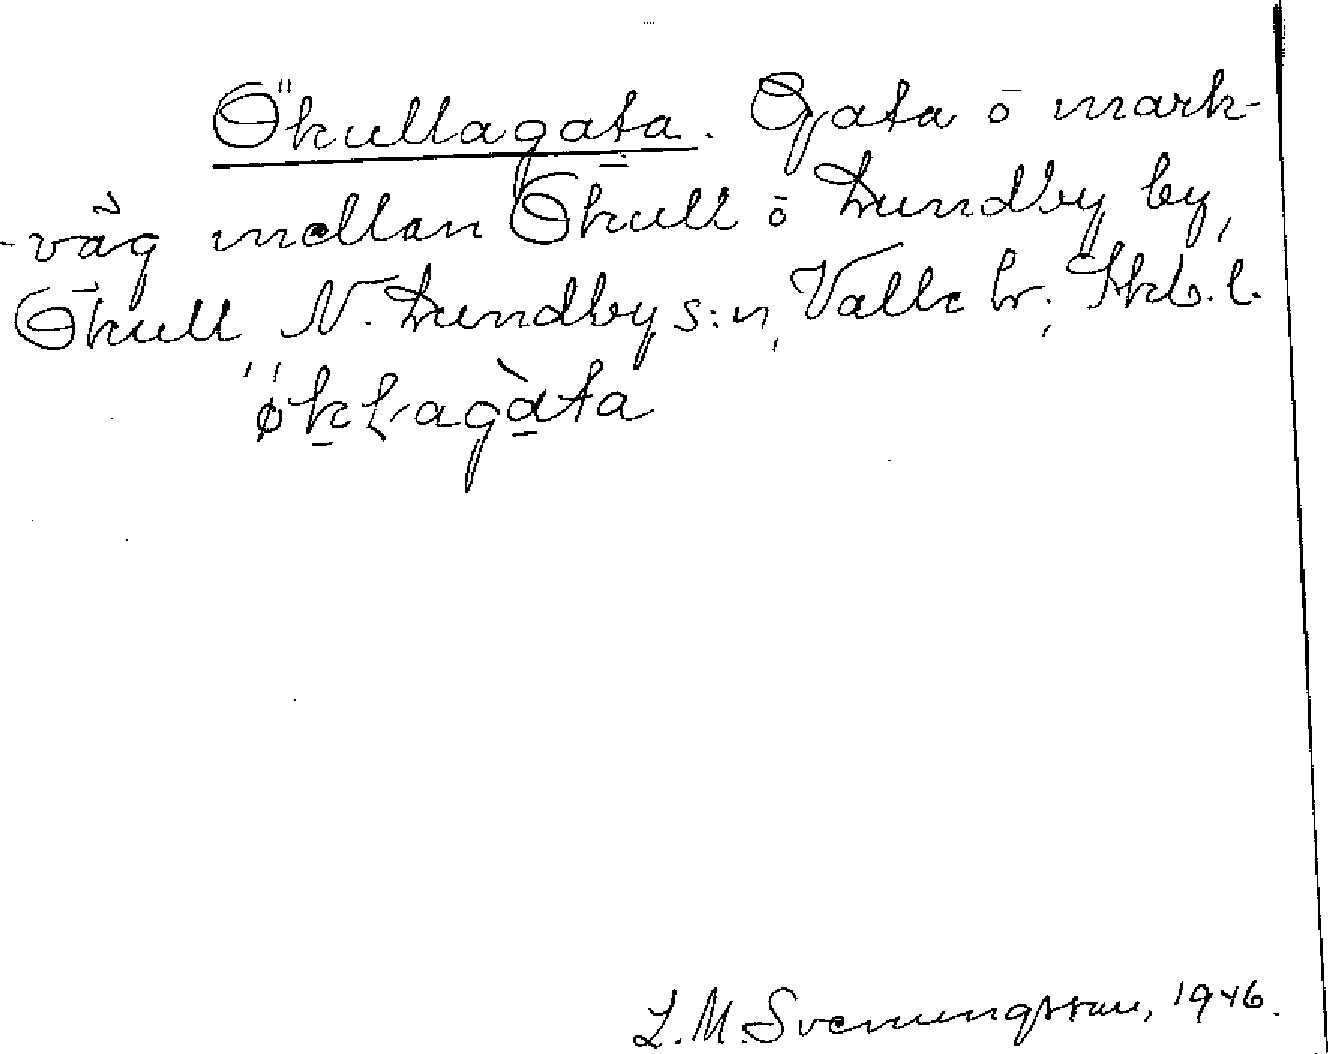 Ökullagata. Gata o mark-
-väg mellan Ökull o Lundby by,
Ökull N. Lundby s:n, Valle hr, Skb. l.
L. M. Svenungsson, 1946.